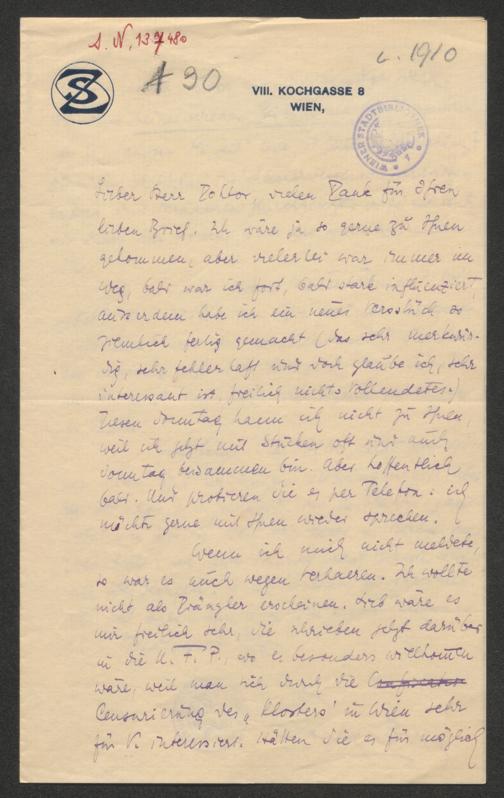 S. N. 137480
c. 1910
A 90
SZ
VIII. KOCHGASSE 8
WIEN,
WIENER STADTBIBLIOTHEK
Lieber Herr Doktor, vielen Dank für Ihren
lieben Brief. Ich wäre ja so gerne zu Ihnen
gekommen, aber vielerlei war immer im
Weg, bald war ich fort, bald stark influenziert,
ausserdem habe ich ein neues Versbuch so
ziemlich fertig gemacht (das sehr merkwür-
dig, sehr fehlerhaft und doch glaube ich, sehr
interessant ist, freilich nichts Vollendetes.)
Diesen Sonntag kann ich nicht zu Ihnen,
weil ich jetzt mit Stucken oft und auch
Sonntag beisammen bin. Aber hoffentlich
bald. Und probieren Sie es per Telefon: ich
möchte gerne mit Ihnen wieder sprechen.
Wenn ich mich nicht meldete,
so war es auch wegen Verhaeren. Ich wollte
nicht als Drängler erscheinen. Lieb wäre es
mir freilich sehr, Sie schrieben jetzt darüber
in die N. F. P., wo es besonders willkommen
wäre, weil man sich durch die
Censurierung des „Klosters" in Wien sehr
für V. interessiert. Hätten Sie es für möglich